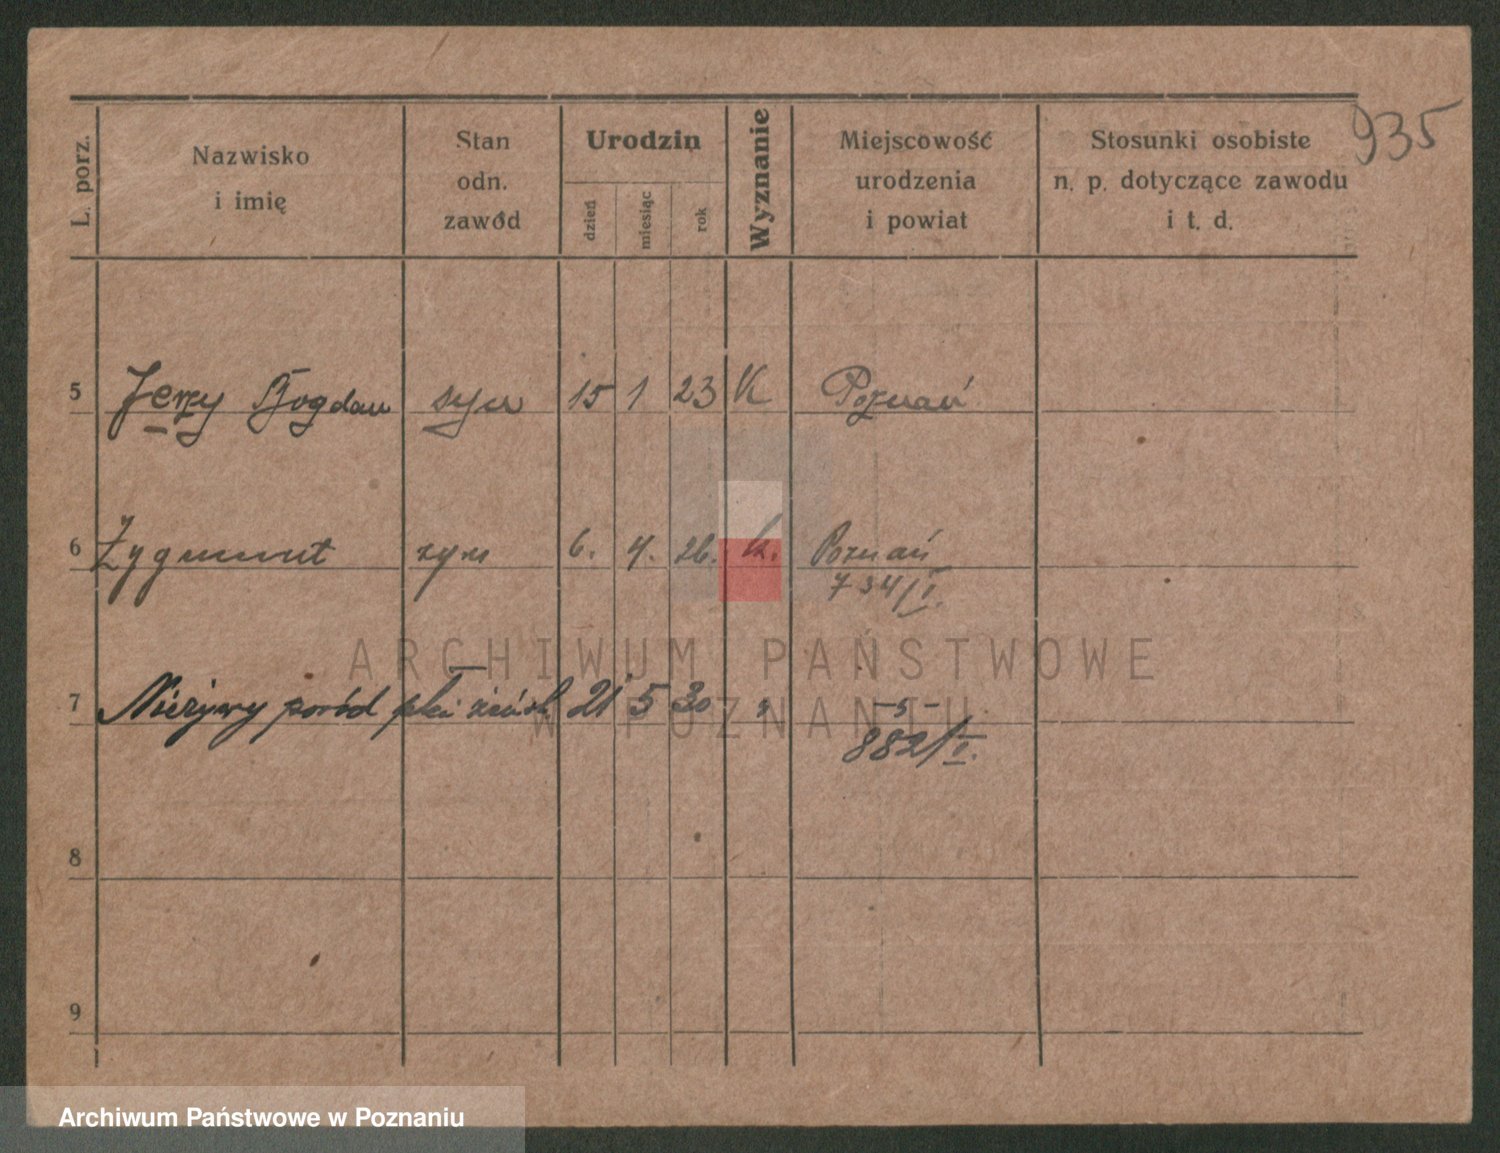 935
L. porz.
Nazwisko
i imię
Stan
odn.
zawód
Urodzin
dzień
miesiąc
rok
Wyznanie
Miejscowość
urodzenia
i powiat
Stosunki osobiste
n. p. dotyczące zawodu
i t. d.
5 Jerzy Bogdan syn 15 1 23 K Poznań
6 Zygmunt syn 6. 4. 26. k. Poznań
734/I.
7 Nieżywy poród płci żeńsk 21 5 30 " -"-
882/I.
8
9
ARCHIWUM PAŃSTWOWE
W POZNANIU
Archiwum Państwowe w Poznaniu